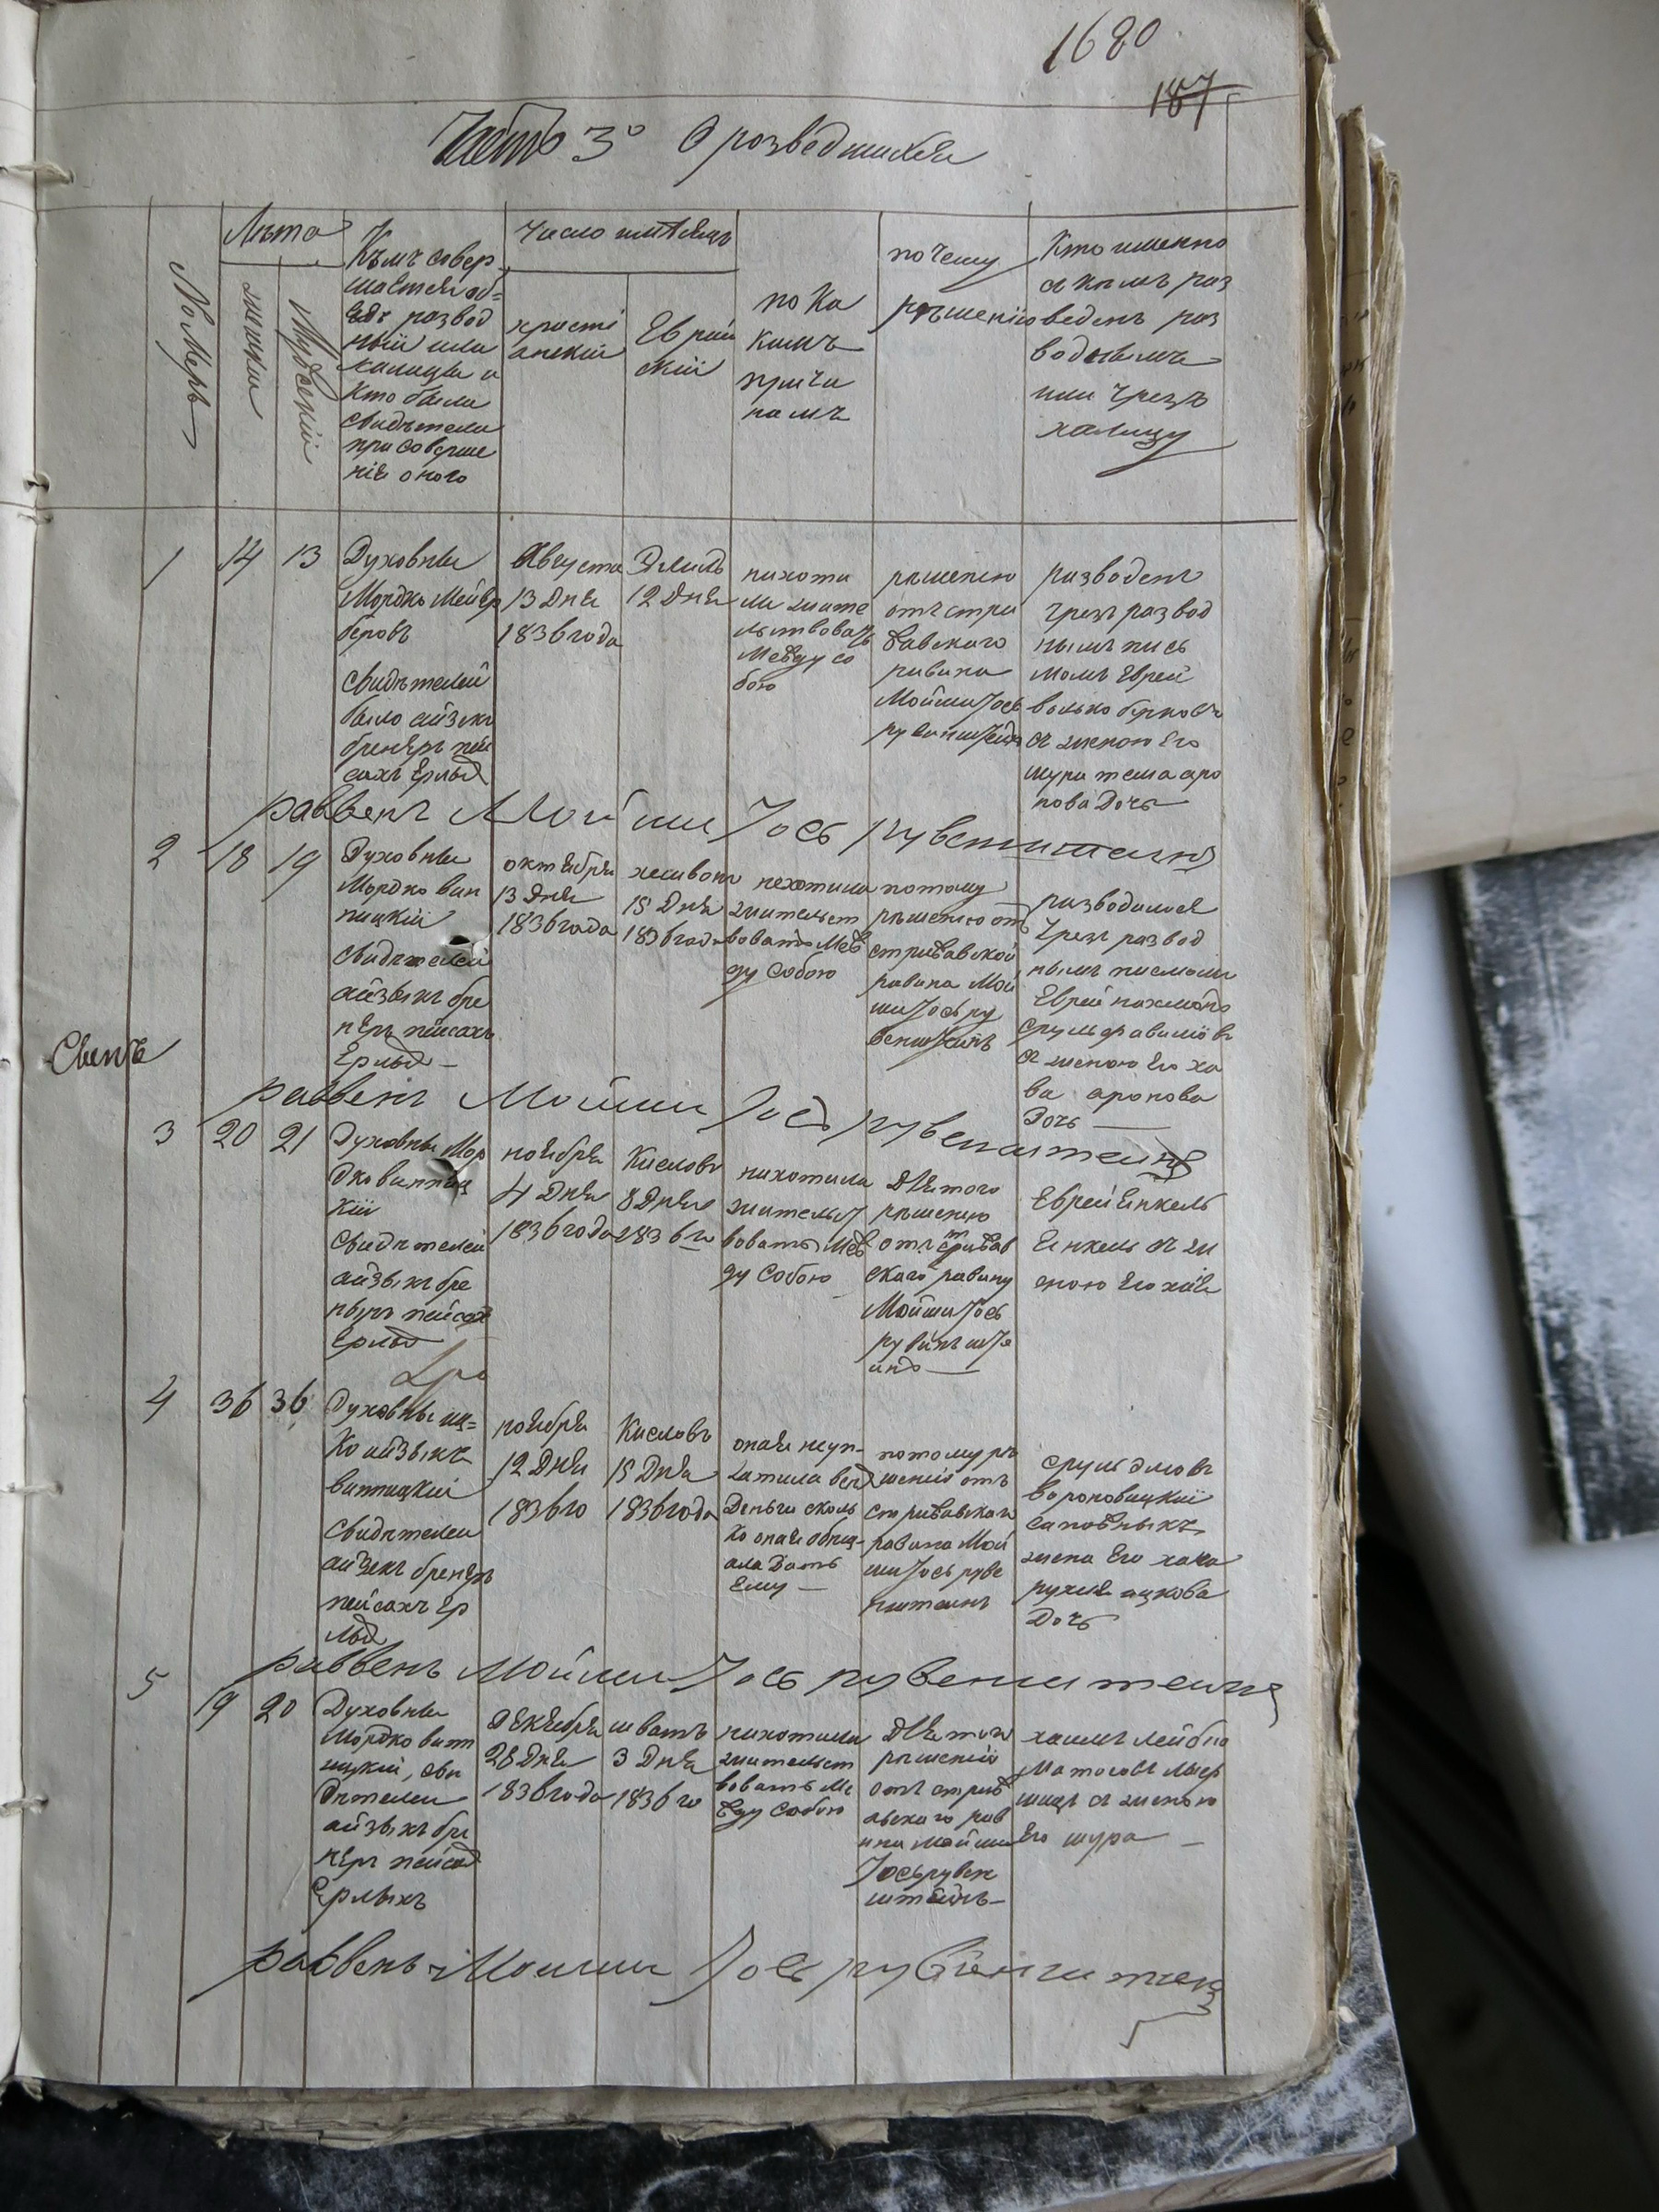 1680
187
Часть 3° О розведшихся
Номеръ
Лѣта
женскии
Мужескій
Кѣмъ совер
шается об=
рядъ розвод
ный или
халицы и
кто были
свидѣтели
при соверше
ніе оного
Число и мѣсяцъ
христі
анскій
Еврей
скій
по Ка
кимъ
причи
намъ
по чему
рѣшенію
Кто именно
съ кѣмъ раз
веденъ раз
водомъ
или Чрезъ
халицу
1
14
13
Духовны
Мордко Мейер
беровъ
свидѣтелей
было айзекъ
бренеръ пей
сахъ Ерлых
Августа
13 Дня
1836 года
Элилъ
12 Дня
нихоти
ли жите
льствовать
Между со
бою
рѣшению
отъ стри
жавского
равина
Мойши Iось
рувинштейнъ
разводенъ
чрезъ развод
нымъ пись
момъ Еврей
волько берковъ
съ женою Его
шура тема аро
нова Дочь
раввенъ Мойши Iось рувенштейнъ
2
18
19
Духовны
Мордко вин
ницкій
свидѣтелей
айзыкъ бре
неръ пейсахъ
Ерлых
октября
13 Дня
1836 года
хешвонъ
15 Дня
1836 года
нехотили
жительст
вовать Меж
ду Собою
потому
рѣшению отъ
стрижавской
равина Мой
ши Iось ру
веншteйнъ
разводился
Чрезъ развод
нымъ писмомъ
Еврей нахманъ
срулъ
съ женою Его ха
ва аронова
Дочь
раввенъ Мойши Iось рувенштейнъ
3
20
21
Духовны Мор
дко винниц
кій
Свидѣтелей
айзыкъ бре
неръ пейсах
Ерлых
ноября
4 Дня
1836 года
Кисловъ
8 Дня
1836 го
нихотили
жительст
вовать Меж
ду Собою
Для того
рѣшению
отъ стрижав
ского равину
Мойши Iось
рувинъ штe
инъ
Еврей Енкель
Енкель съ же
ною Его хая
4
36
36
Духовны иц=
ко айзыкъ
винницкій
свидѣтелеи
айзекъ бренеръ
пейсахъ Ер
лых
ноября
12 Дня
1836 го
Кисловъ
15 Дня
1836 года
оная неуп-
латила
Деньги сколь
ко оная обещ-
ала Дать
Ему
потому рѣ
шений отъ
стрижавского
равина Мой
ши Iось руве
нштеинъ
вороновицкій
жена Его хака
рухля ицкова
Дочь
раввенъ Мойши Iось рувенштеинъ
5
19
20
Духовны
Мордко винн
ицкій, сви
дѣтелеи
айзыкъ бре
неръ пейсах
Ерлыхъ
Декября
28 Дня
1836 года
шватъ
3 Дня
1836 го
нихотили
жительст
вовать Ме
жду Собою
Для того
рѣшений
отъ стриж
авского рав
ина Мойши
Iось рувен
штейнъ
хаимъ лейба
съ женою
Его шура
раввенъ Мошши Iось рувенштеи